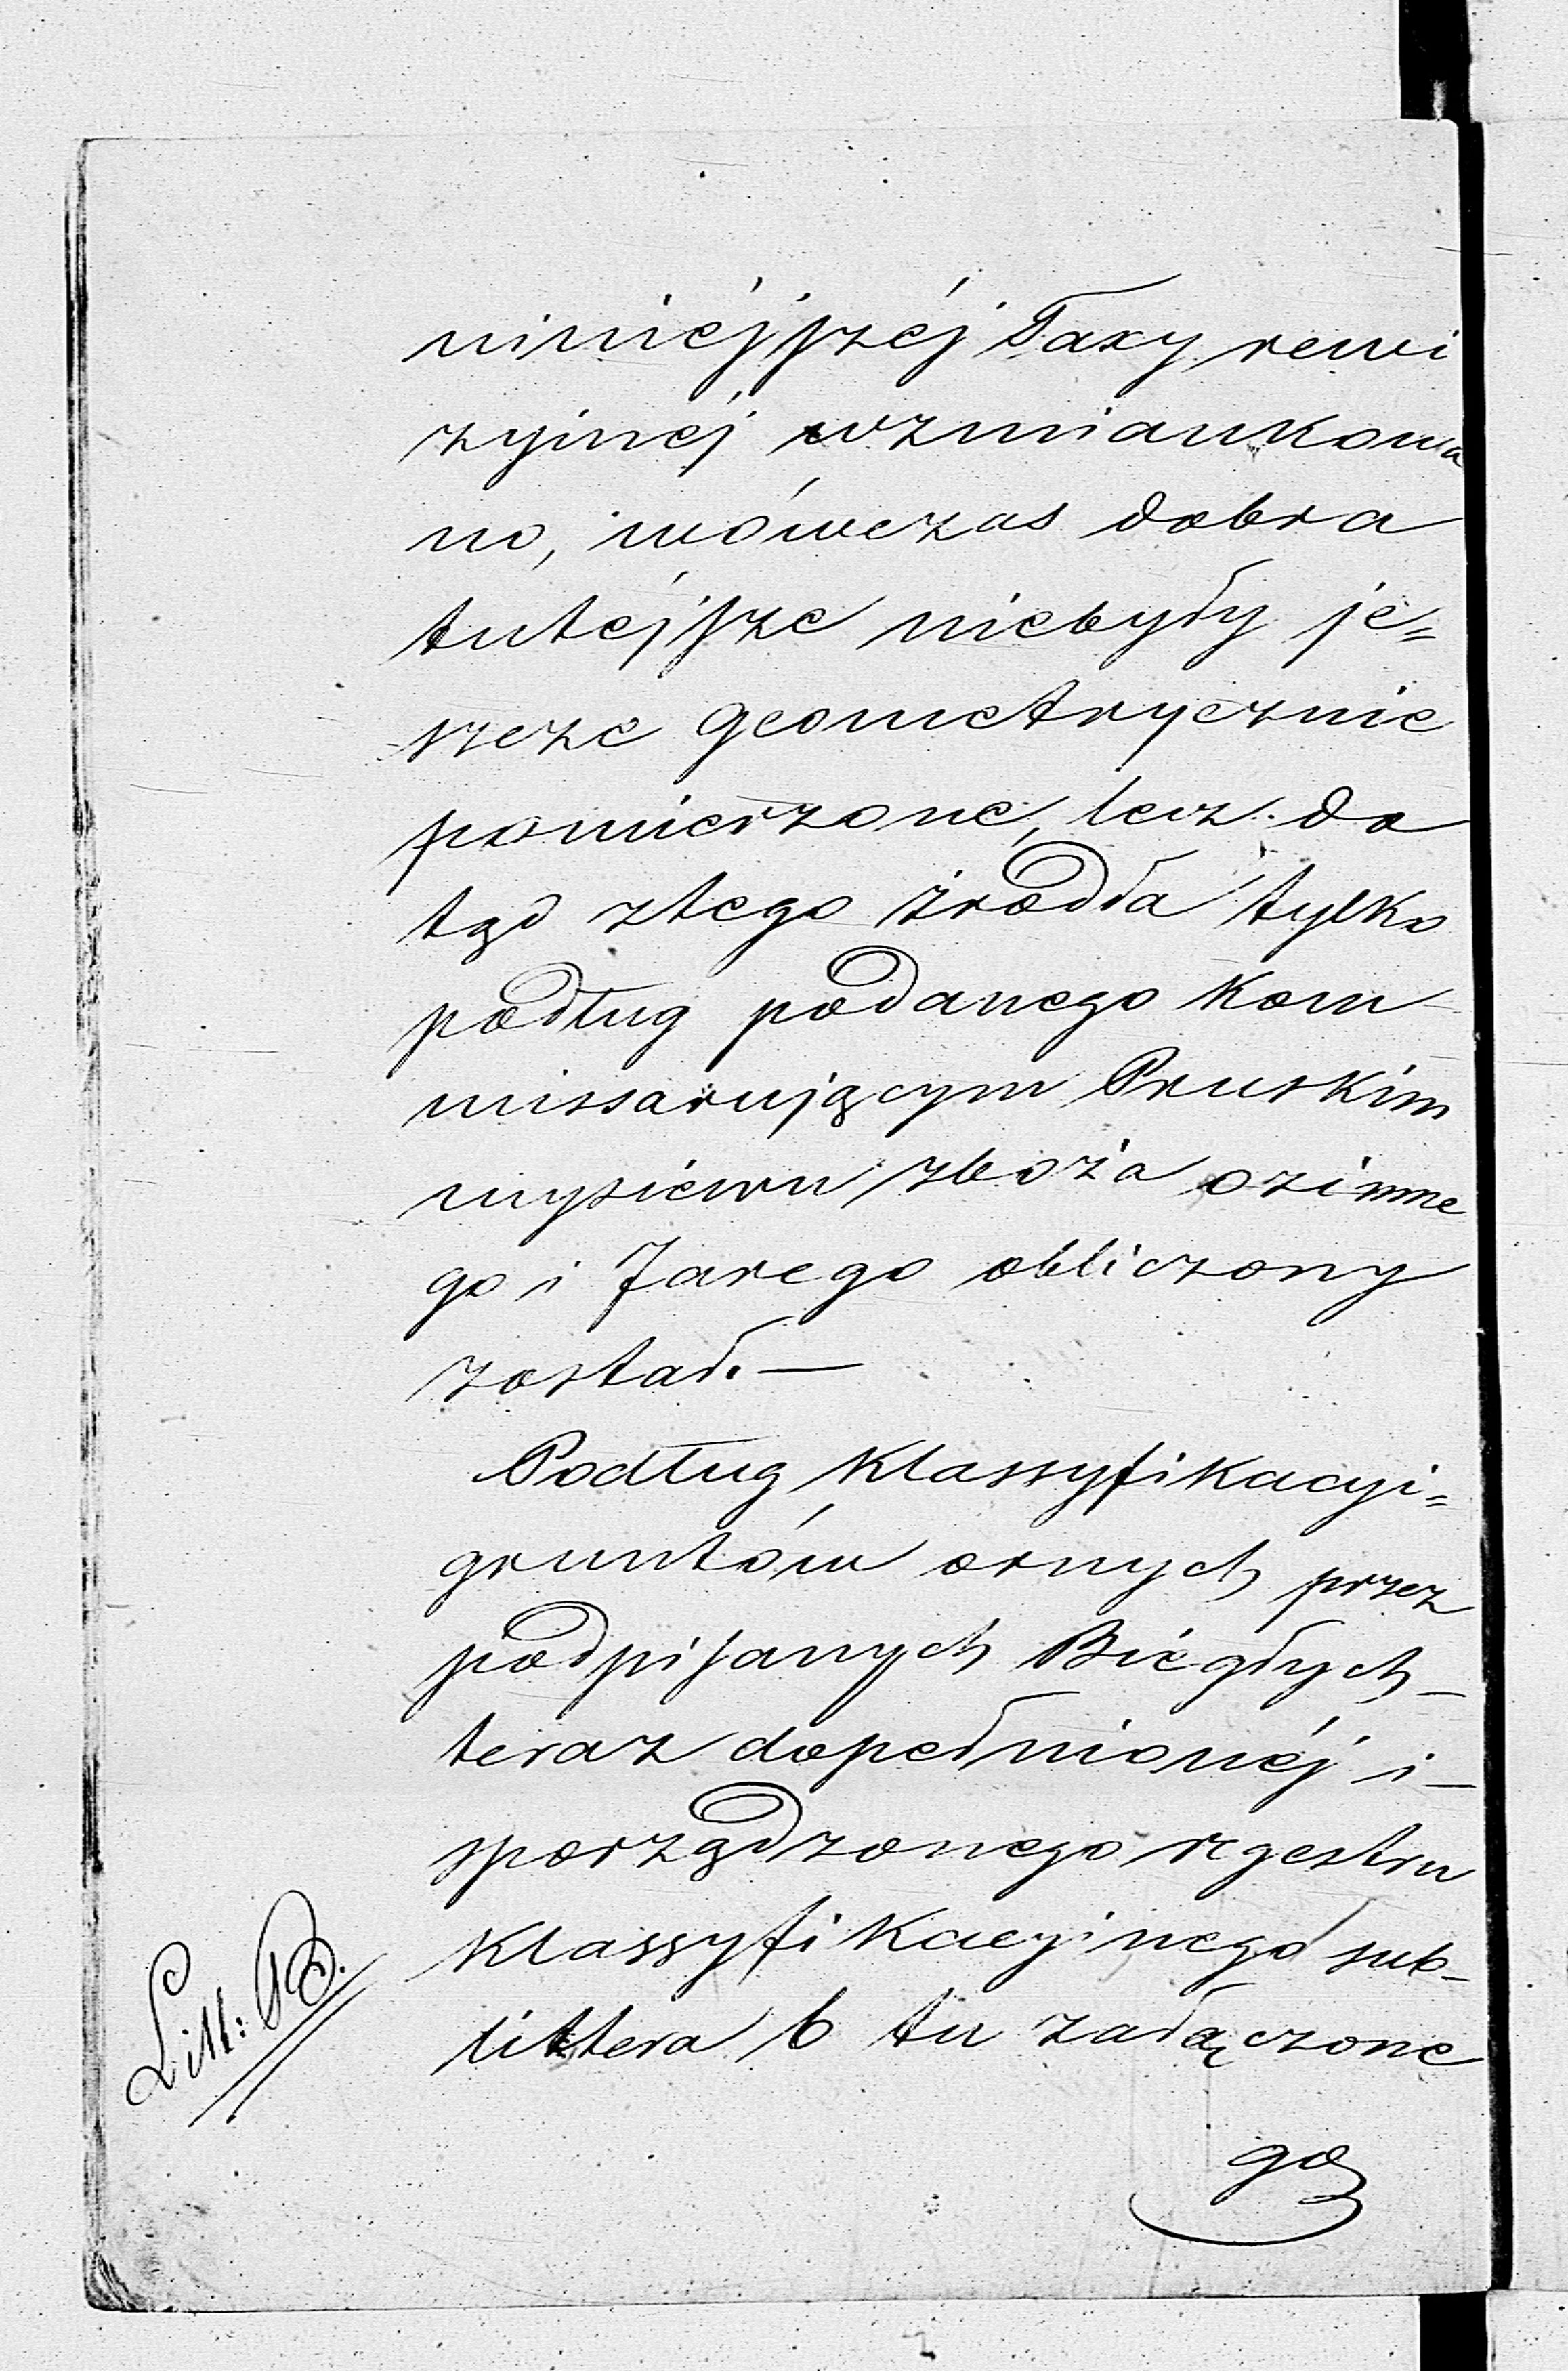 niniejszéj Taxy rewi
zyinéj wzmiankowa
no, wówczas dobra
tutéjsze niebyły je=
szcze geometrycznie
pomierzone, lecz do
tąd ztego żrodła tylko
podług podanego kom
missarującym Pruskim
wysiewu zboża ozimne
go i Jarego obliczony
został.—
Podług Klassyfikacyi=
gruntów ornych przez
podpisanych Biegłych—
teraz dopełnionéj i—
sporządzonego regestru
Klassyfikacyinego sub—
littera b tu załączone
go
Litt: B.